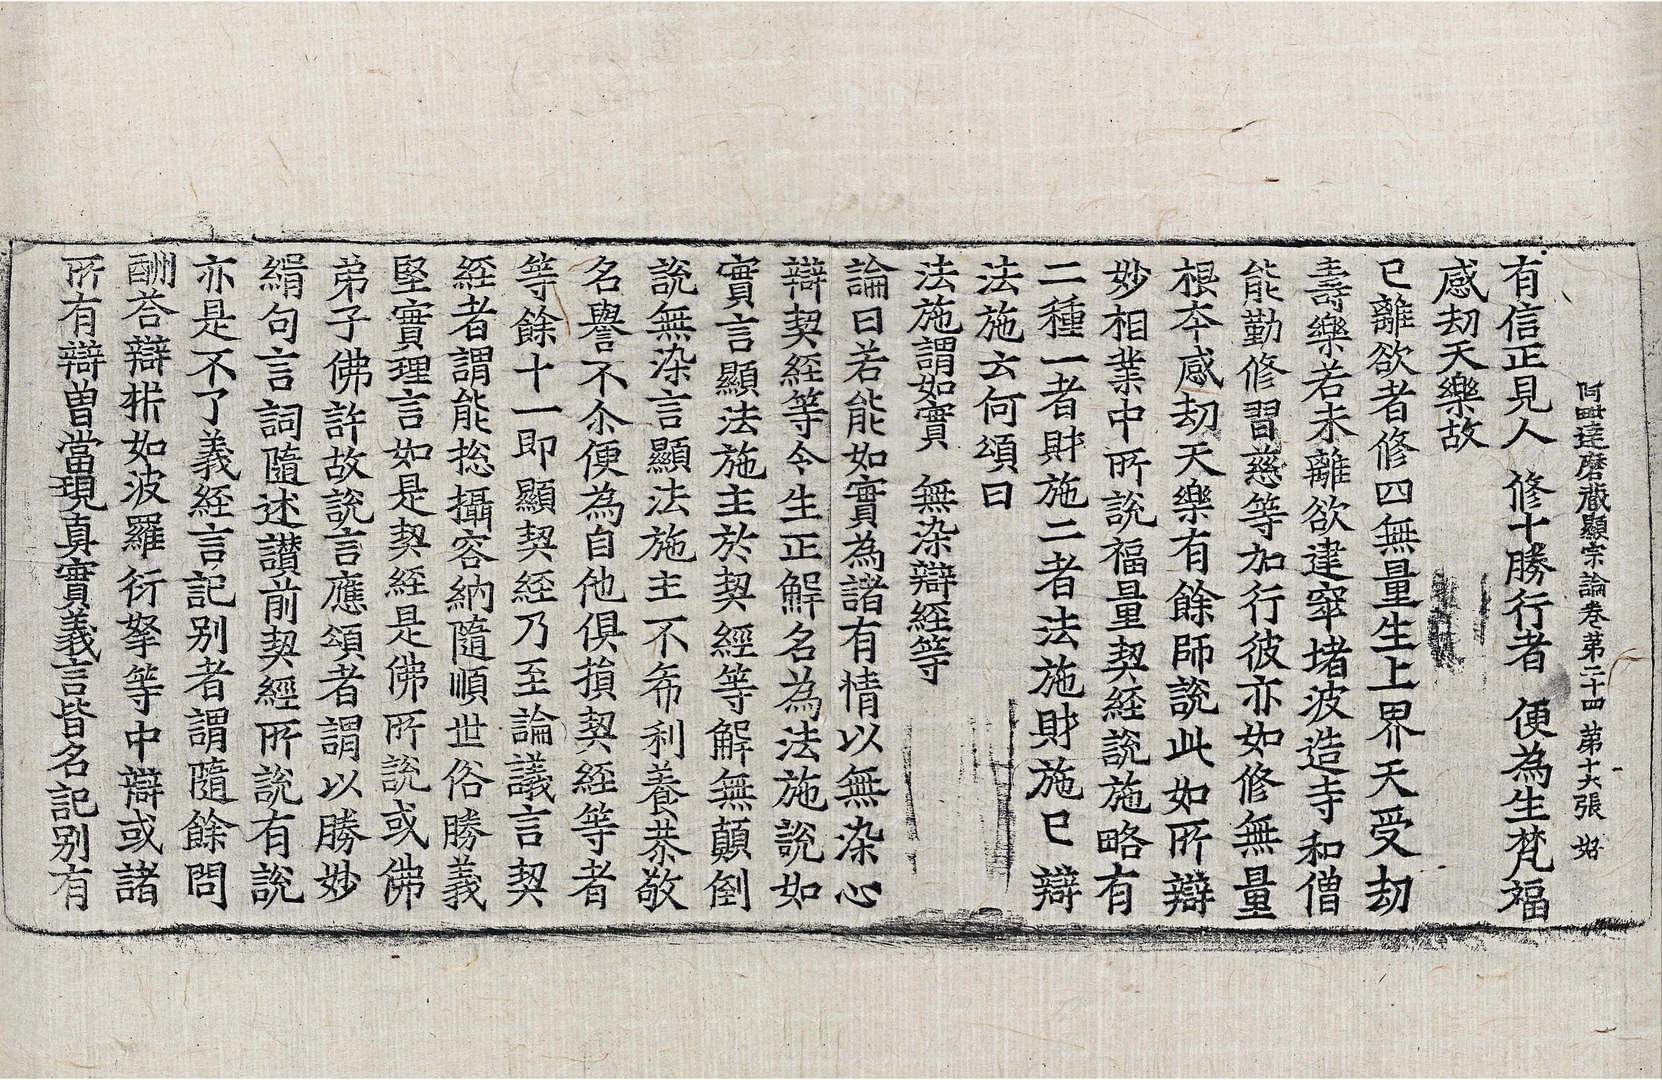 阿毗達磨藏顯宗論卷第二十四 第十六張 始
有信正見人 修十勝行者 便為生梵福
感劫天樂故
已離欲者修四無量生上界天受劫
壽樂若未離欲建窣堵波造寺和僧
能勤修習慈等加行彼亦如修無量
根夲感劫天樂有餘師說此如所辯
妙相業中所說福量契經說施略有
二種一者財施二者法施財施已辯
法施云何頌曰
法施謂如實 無染辯經等
論曰若能如實為諸有情以無染心
辯契經等令生正解名為法施說如
實言顯法施主於契經等解無顛倒
說無染言顯法施主不希利養恭敬
名譽不尒便為自他俱損契經等者
等餘十一即顯契經乃至論議言契
經者謂能揔攝容納隨順世俗勝義
堅實理言如是契經是佛所說或佛
弟子佛許故說言應頌者謂以勝妙
緝句言詞隨述讃前契經所說有說
亦是不了義經言記別者謂隨餘問
酬荅辯㭊如波羅衍拏等中辯或諸
所有辯曽當現真實義言皆名記別有